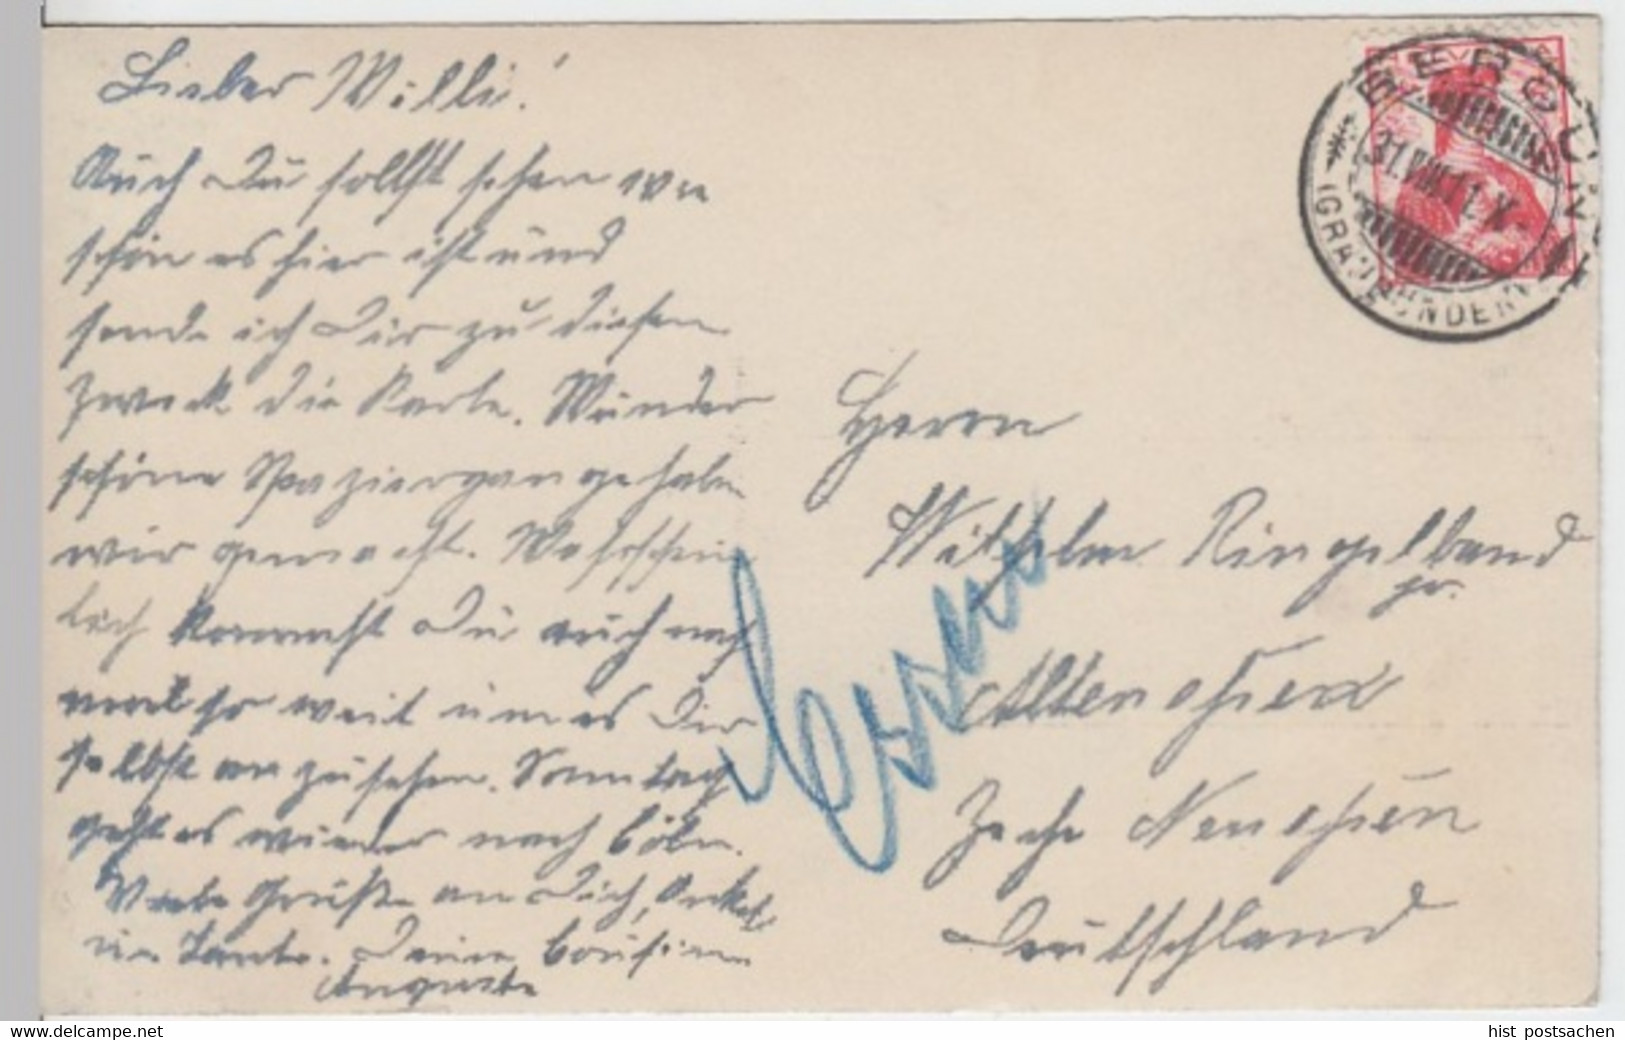 Lieber Willi!
Auch Du sollst sehen wie
schön es hier ist und
sende ich Dir zu diesem
Zweck die Karte. Wunder
schöne Spaziergänge haben
wir gemacht. Wahrschein
lich kommst Du auch noch
mal so weit um es Dir
selbst anzusehen. Sonntag
geht es wieder nach Cöln.
Viele Grüße an Dich, Onkel
u. Tante. Deine Cousine
Auguste
BERGÜN
31.VIII.11.X
(GRAUBÜNDEN)
Herrn
Wilhelm Ringelband
jr.
Altenessen
Essen
Zeche Neuessen
Deutschland
www.delcampe.net
hist_postsachen